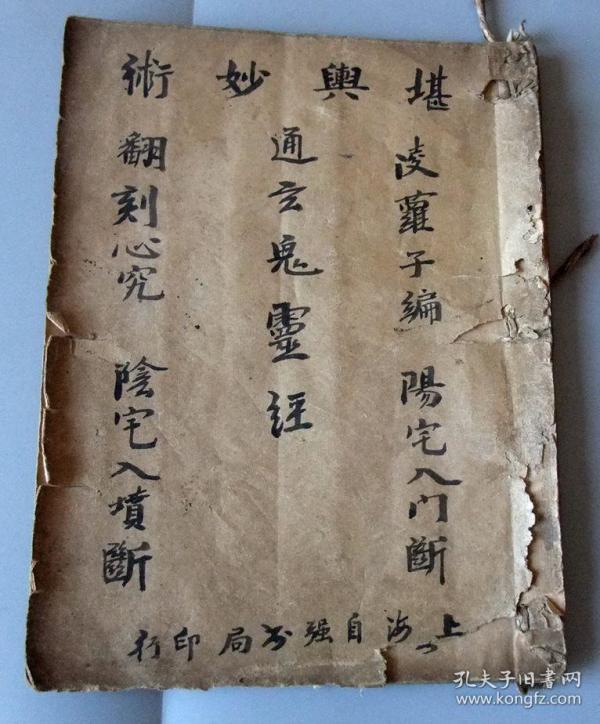 堪輿妙術
凌蘿子編 陽宅入門斷
通玄鬼靈經
翻刻心究 陰宅入墳斷
上海自强书局印行
孔夫子旧书网
www.kongfz.com